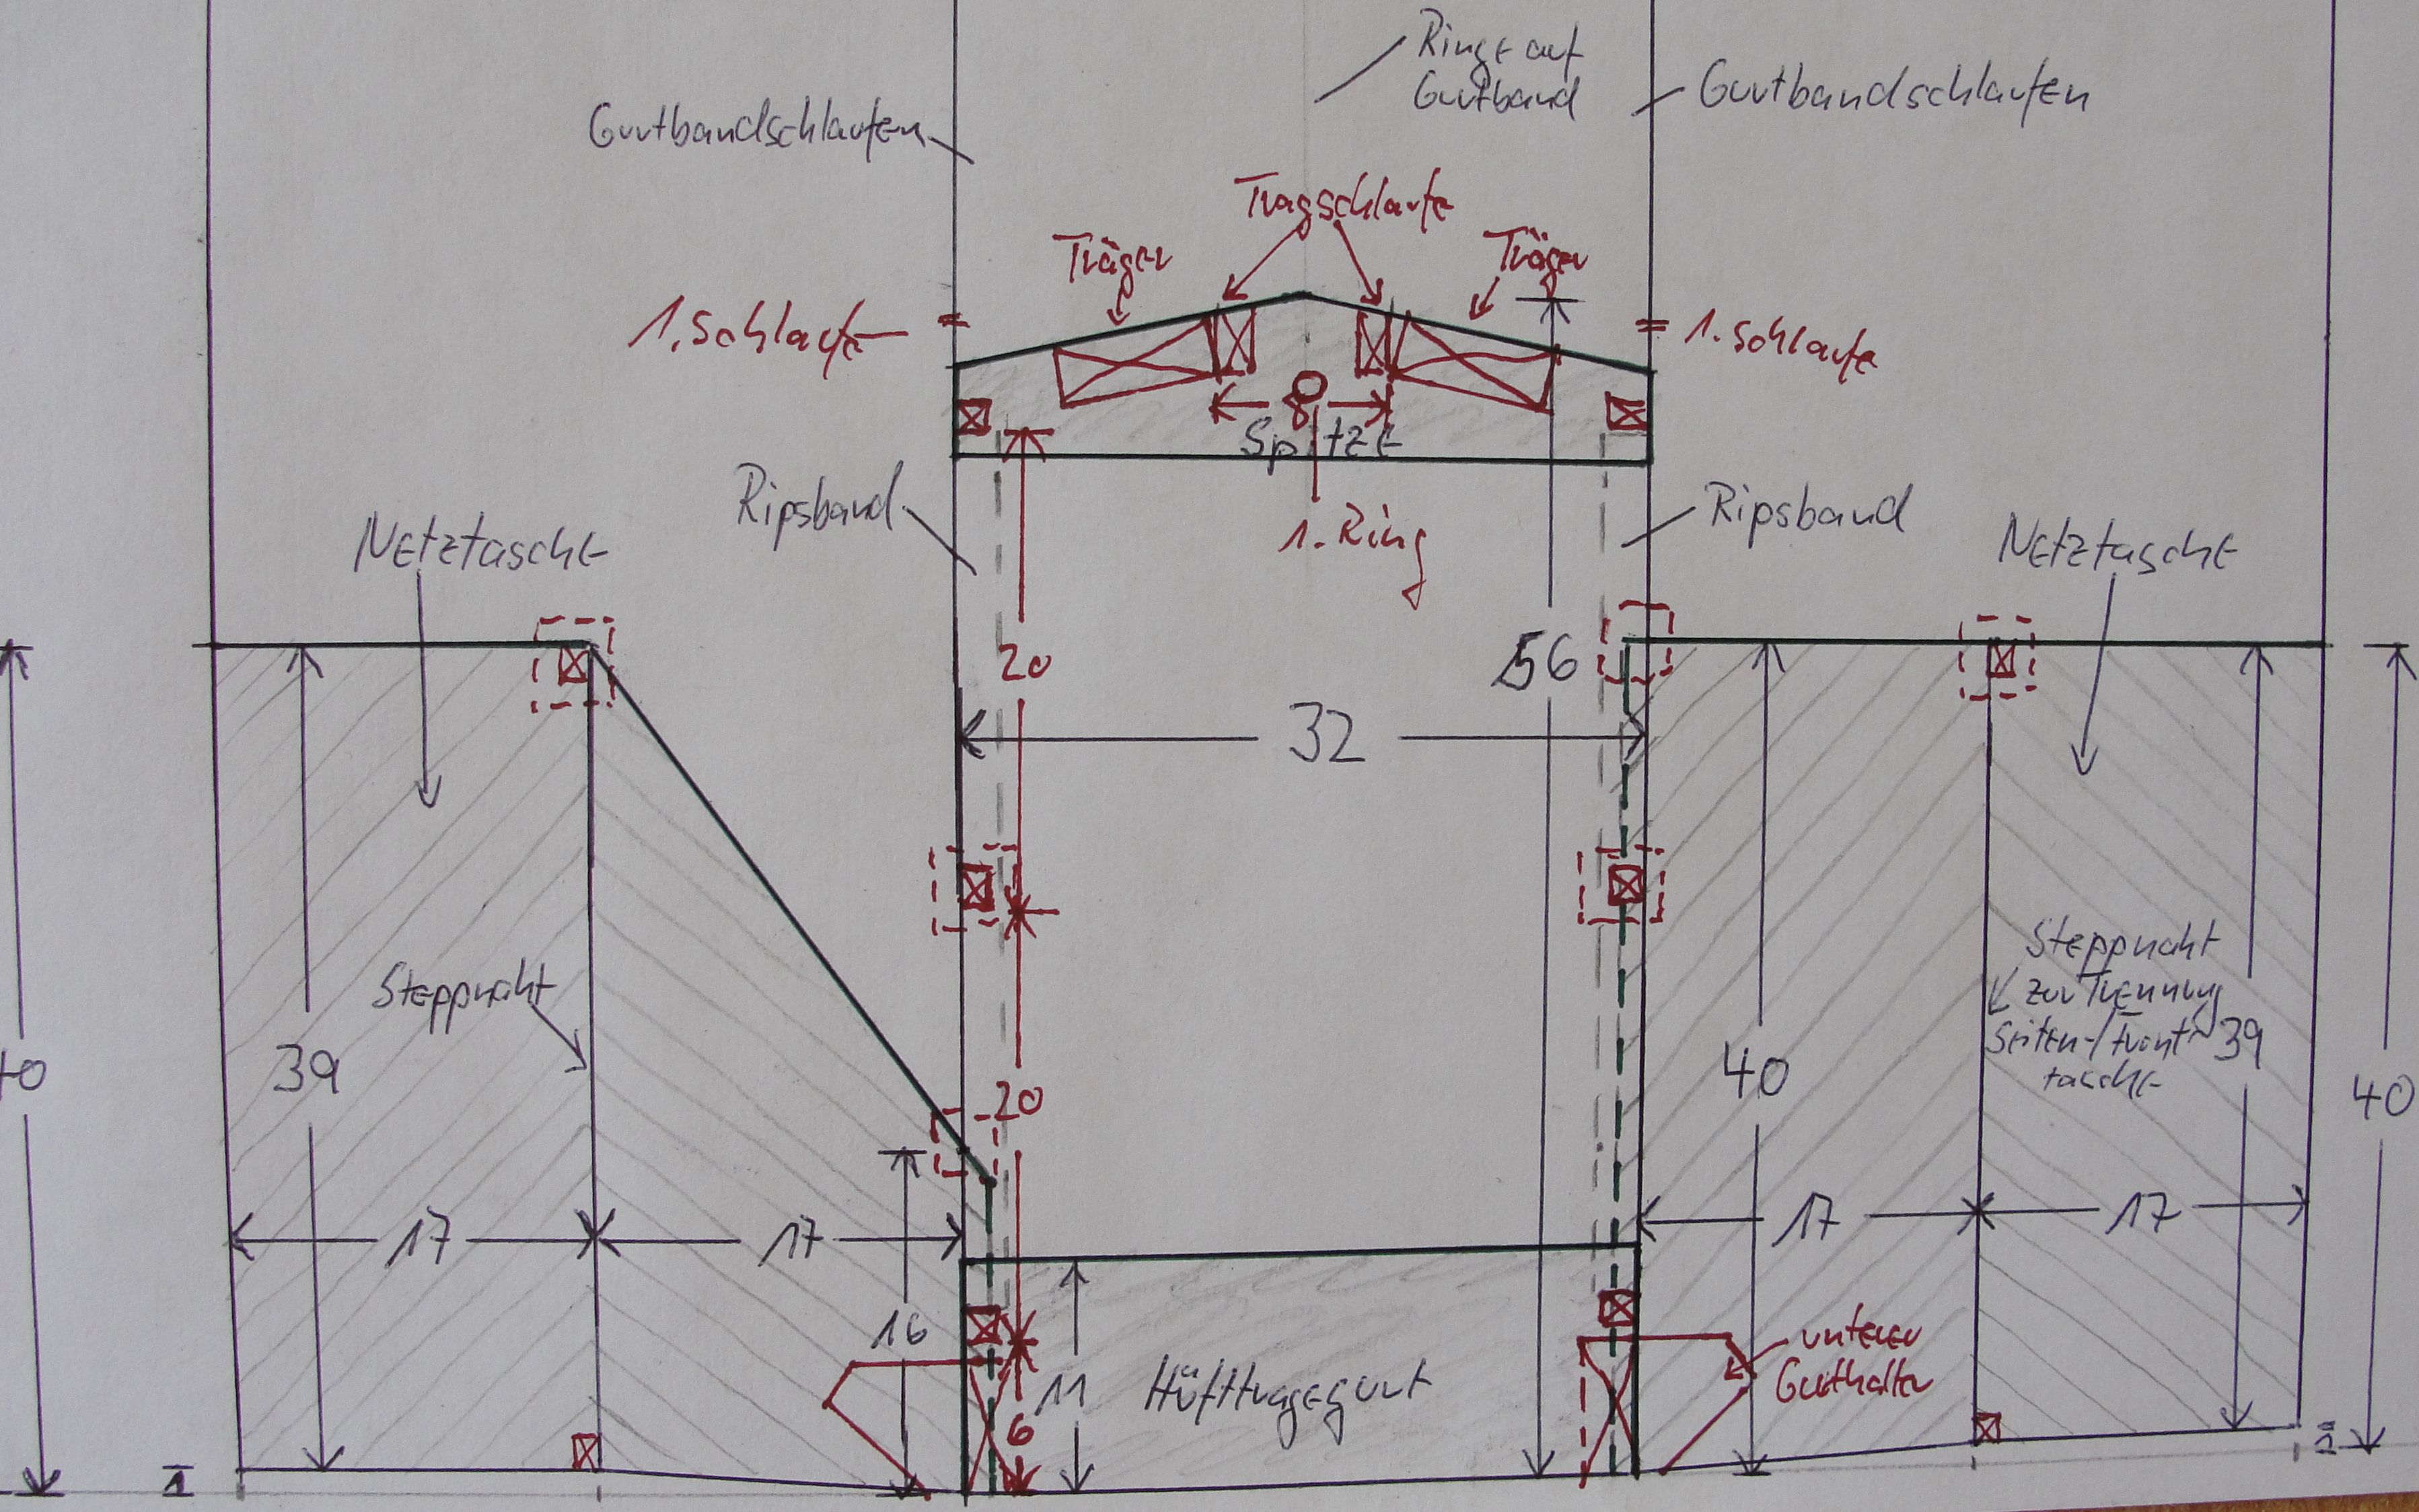 Ringe auf
Gurtband
Gurtbandschlaufen
Gurtbandschlaufen
Tragschlaufe
Träger
Träger
1. Schlaufe
1. Schlaufe
8
Spitze
1. Ring
Ripsband
Ripsband
Netztasche
Netztasche
20
56
32
Steppnaht
Steppnaht
zur Trennung
Seiten-/Front-
tasche
39
39
40
40
40
20
17
17
17
17
16
11
Hüfttragegurt
unterer
Gurthalter
6
1
1